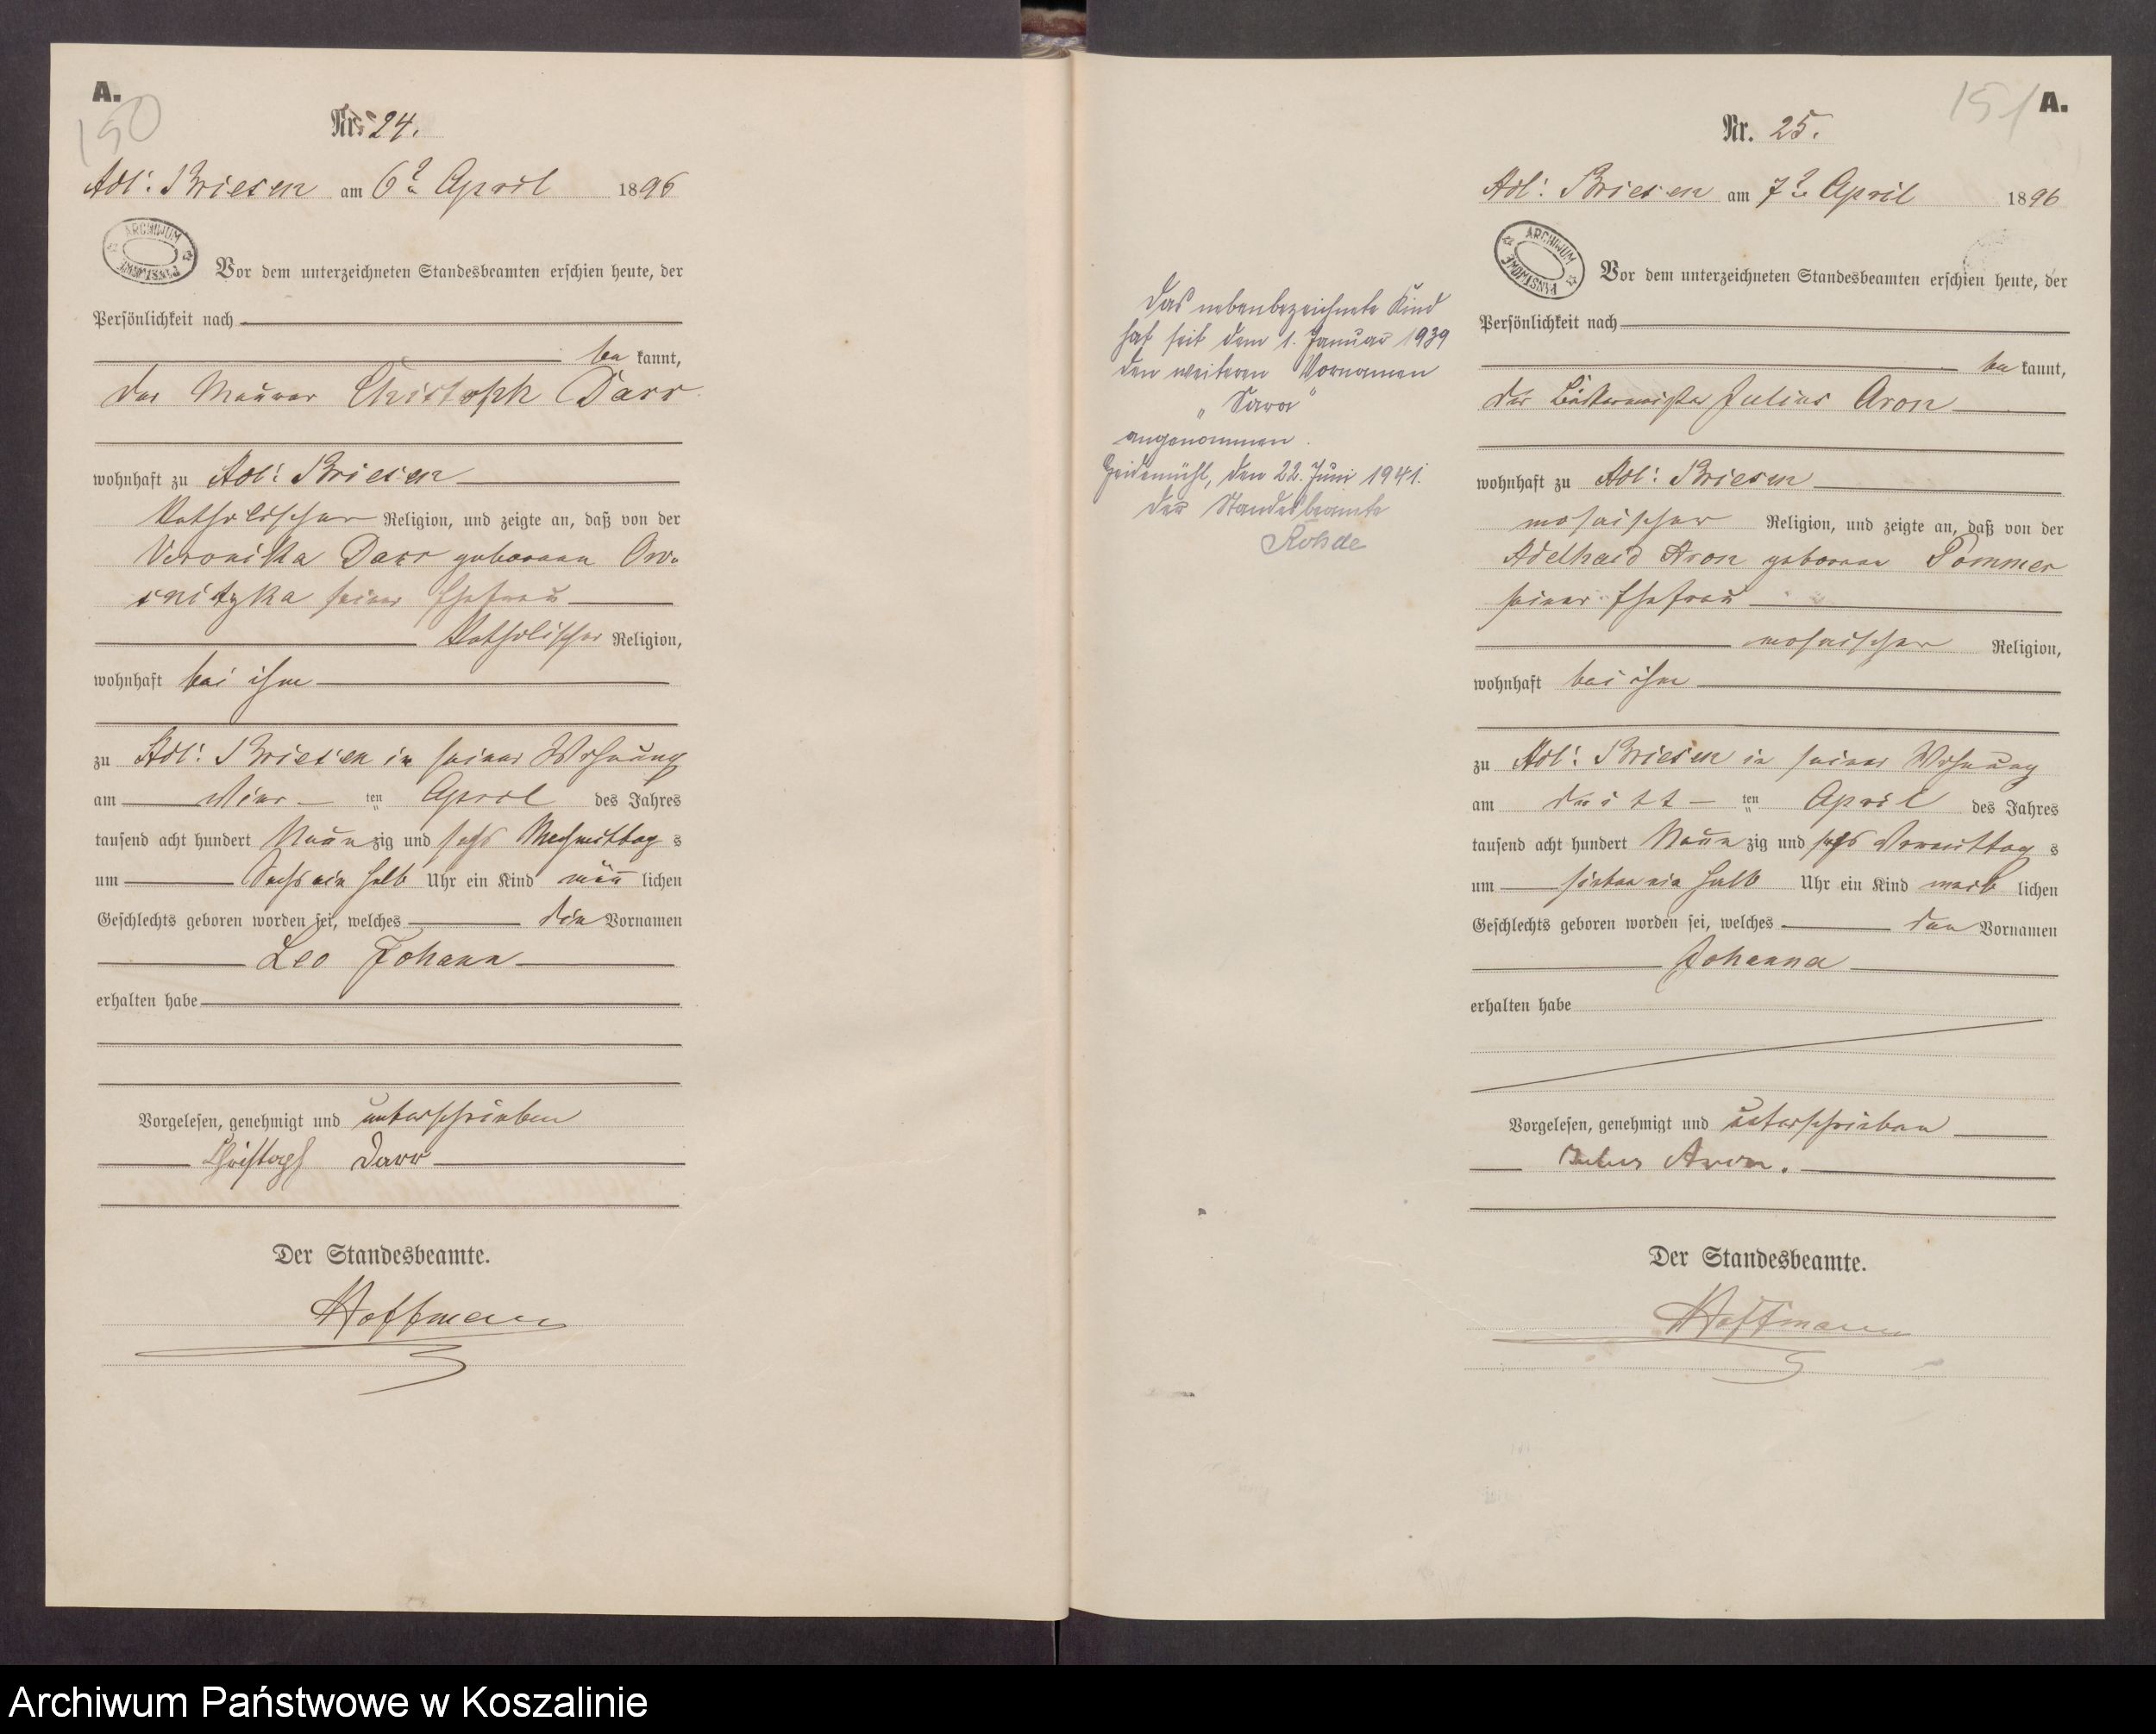 A.
150
Nr. 24.
Adl: Briesen am 6ten April 1896
ARCHIWUM PAŃSTWOWE
Vor dem unterzeichneten Standesbeamten erschien heute, der
Persönlichkeit nach
be kannt,
der Maurer Christoph Darr
wohnhaft zu Adl: Briesen
katholischer Religion, und zeigte an, daß von der
Veronika Darr geborenen Ow.
snitzka seiner Ehefrau
katholischer Religion,
wohnhaft bei ihm
zu Adl: Briesen in seiner Wohnung
am vier ten April des Jahres
tausend acht hundert Neun zig und sechs Nachmittag s
um Sechs ein halb Uhr ein Kind män lichen
Geschlechts geboren worden sei, welches die Vornamen
Leo Johann
erhalten habe
Vorgelesen, genehmigt und unterschrieben
Christoph Darr
Der Standesbeamte.
Hoffmann
151
A.
Nr. 25.
Adl: Briesen am 7ten April 1896
ARCHIWUM PAŃSTWOWE
Vor dem unterzeichneten Standesbeamten erschien heute, der
Persönlichkeit nach
be kannt,
der Julius Aron
wohnhaft zu Adl: Briesen
mosaischer Religion, und zeigte an, daß von der
Adelhaid Aron geborene Pommer
seiner Ehefrau
mosaischer Religion,
wohnhaft bei ihm
zu Adl: Briesen in seiner Wohnung
am dritt ten April des Jahres
tausend acht hundert Neun zig und sechs Vormittag s
um sieben ein halb Uhr ein Kind weib lichen
Geschlechts geboren worden sei, welches den Vornamen
Johanna
erhalten habe
Vorgelesen, genehmigt und unterschrieben
Julius Aron.
Der Standesbeamte.
Hoffmann
Das nebenbezeichnete Kind
hat seit dem 1. Januar 1939
den weiteren Vornamen
„Sara"
angenommen.
Heidemühl, den 22. Juni 1941.
Der Standesbeamte
Rohde
Archiwum Państwowe w Koszalinie